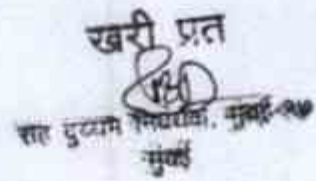 खरी प्रत
सह दुय्यम निबंधक, मुंबई-
मुंबई